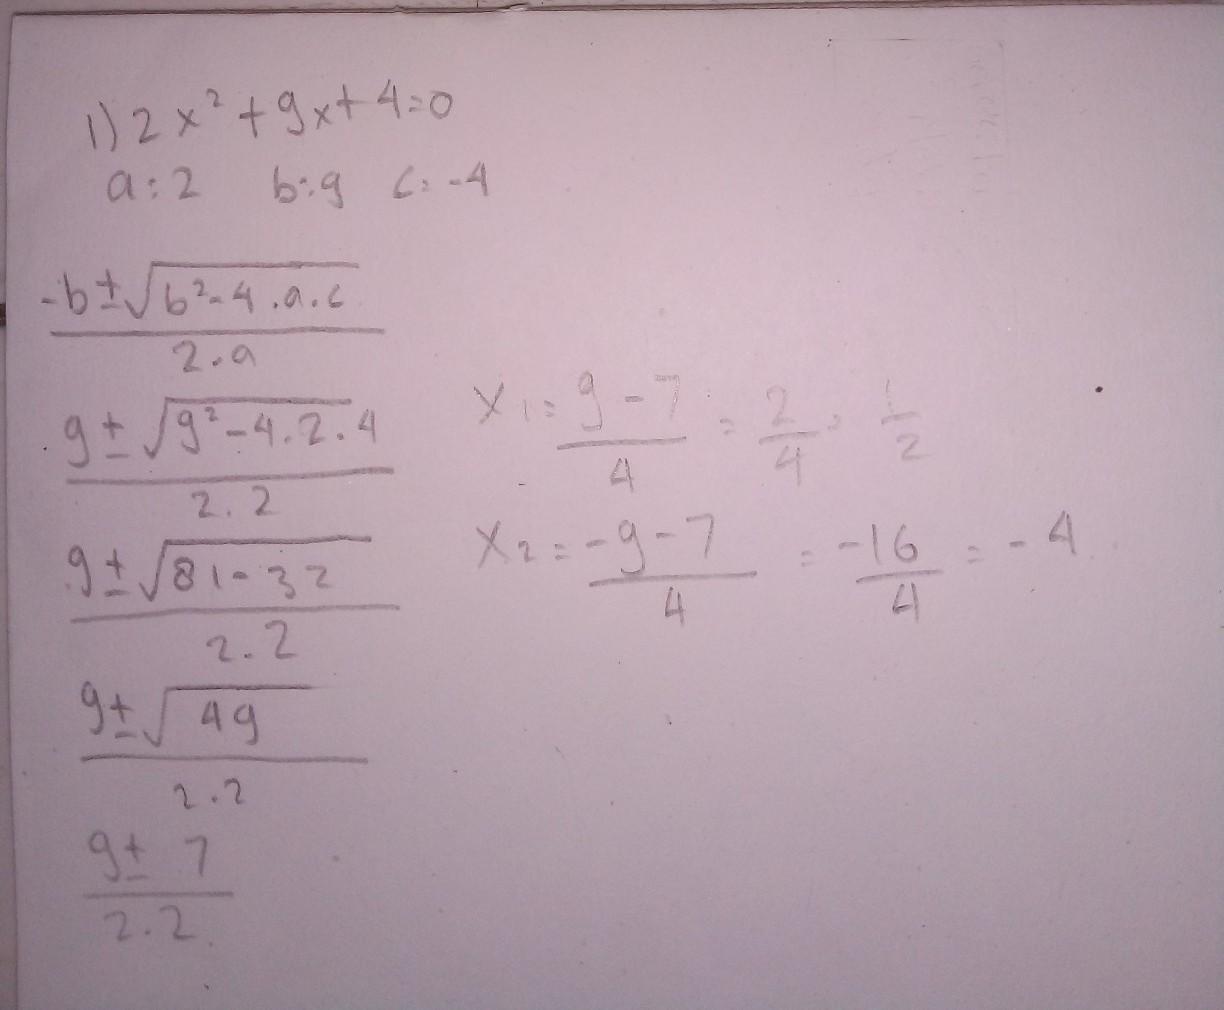 1) 2x² + 9x + 4 = 0
a: 2 b: 9 c: -4
-b ± √(b² - 4 . a . c) / 2 . a
9 ± √(9² - 4 . 2 . 4) / 2 . 2
9 ± √(81 - 32) / 2 . 2
9 ± √49 / 2 . 2
9 ± 7 / 2 . 2
x₁ = 9 - 7 / 4 = 2/4 = 1/2
x₂ = -9 - 7 / 4 = -16/4 = -4